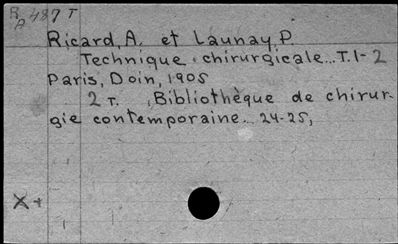 R 487 T
A
Ricard, A. et Launay, P.
Technique chirurgicale... T. 1-2
Paris, Doin, 1905
2 T. , Bibliothèque de chirur-
gie contemporaine... 24-25,
X +